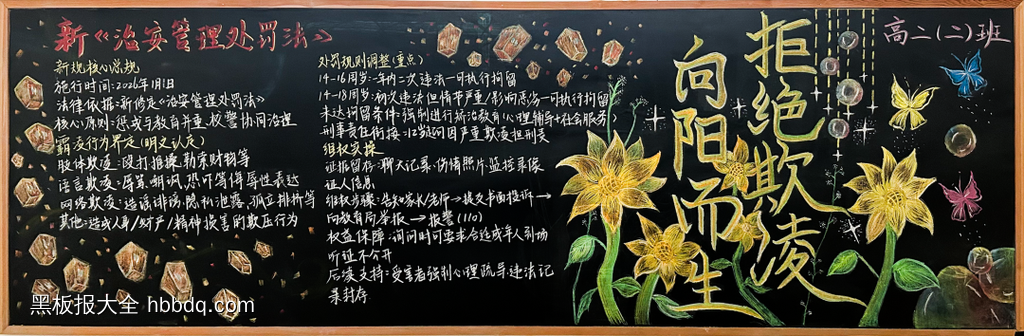 新《治安管理处罚法》
新规核心总规
施行时间:2026年1月1日
法律依据:新修定《治安管理处罚法》
核心原则:惩戒与教育并重,校警协同治理
霸凌行为界定(明文认定)
肢体欺凌:殴打推搡,勒索财物等
语言欺凌:辱骂,嘲讽,恐吓等侮辱性表达
网络欺凌:造谣诽谤,隐私泄露,孤立排挤等
其他:造成人身/财产/精神损害的欺压行为
处罚规则调整(重点)
14-16周岁:一年内二次违法→可执行拘留
14-18周岁:初次违法但情节严重/影响恶劣→可执行拘留
未达拘留条件:强制进行矫治教育,心理辅导+社会服务
刑事责任衔接:12岁可因严重欺凌担刑责
维权实操
证据留存:聊天记录,伤情照片,监控录像
证人信息
维权步骤:告知家长/老师→提交书面投诉→
向教育局举报→报警(110)
权益保障:询问时可要求合适成年人到场
听证不公开
后续支持:受害者强制心理疏导,违法记
录封存
拒绝欺凌
向阳而生
高二(二)班
黑板报大全 hbbdq.com